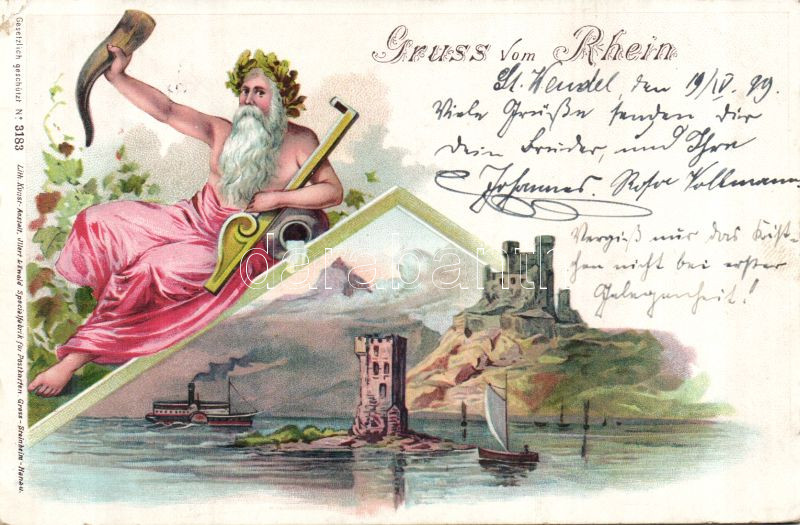 Gruss vom Rhein
St. Wendel, den 19/IV. 99.
Viele Grüße senden dir
dein Bruder, und Ihre
Johannes. Rosa Vollmann
Vergiß nur das Kist-
chen nicht bei erster
Gelegenheit!
Gesetzlich geschützt Nº 3183
Lith. Kunst-Anstalt, Illert & Ewald Specialfabrik für Postkarten. Gross-Steinheim-Hanau.
darabanth